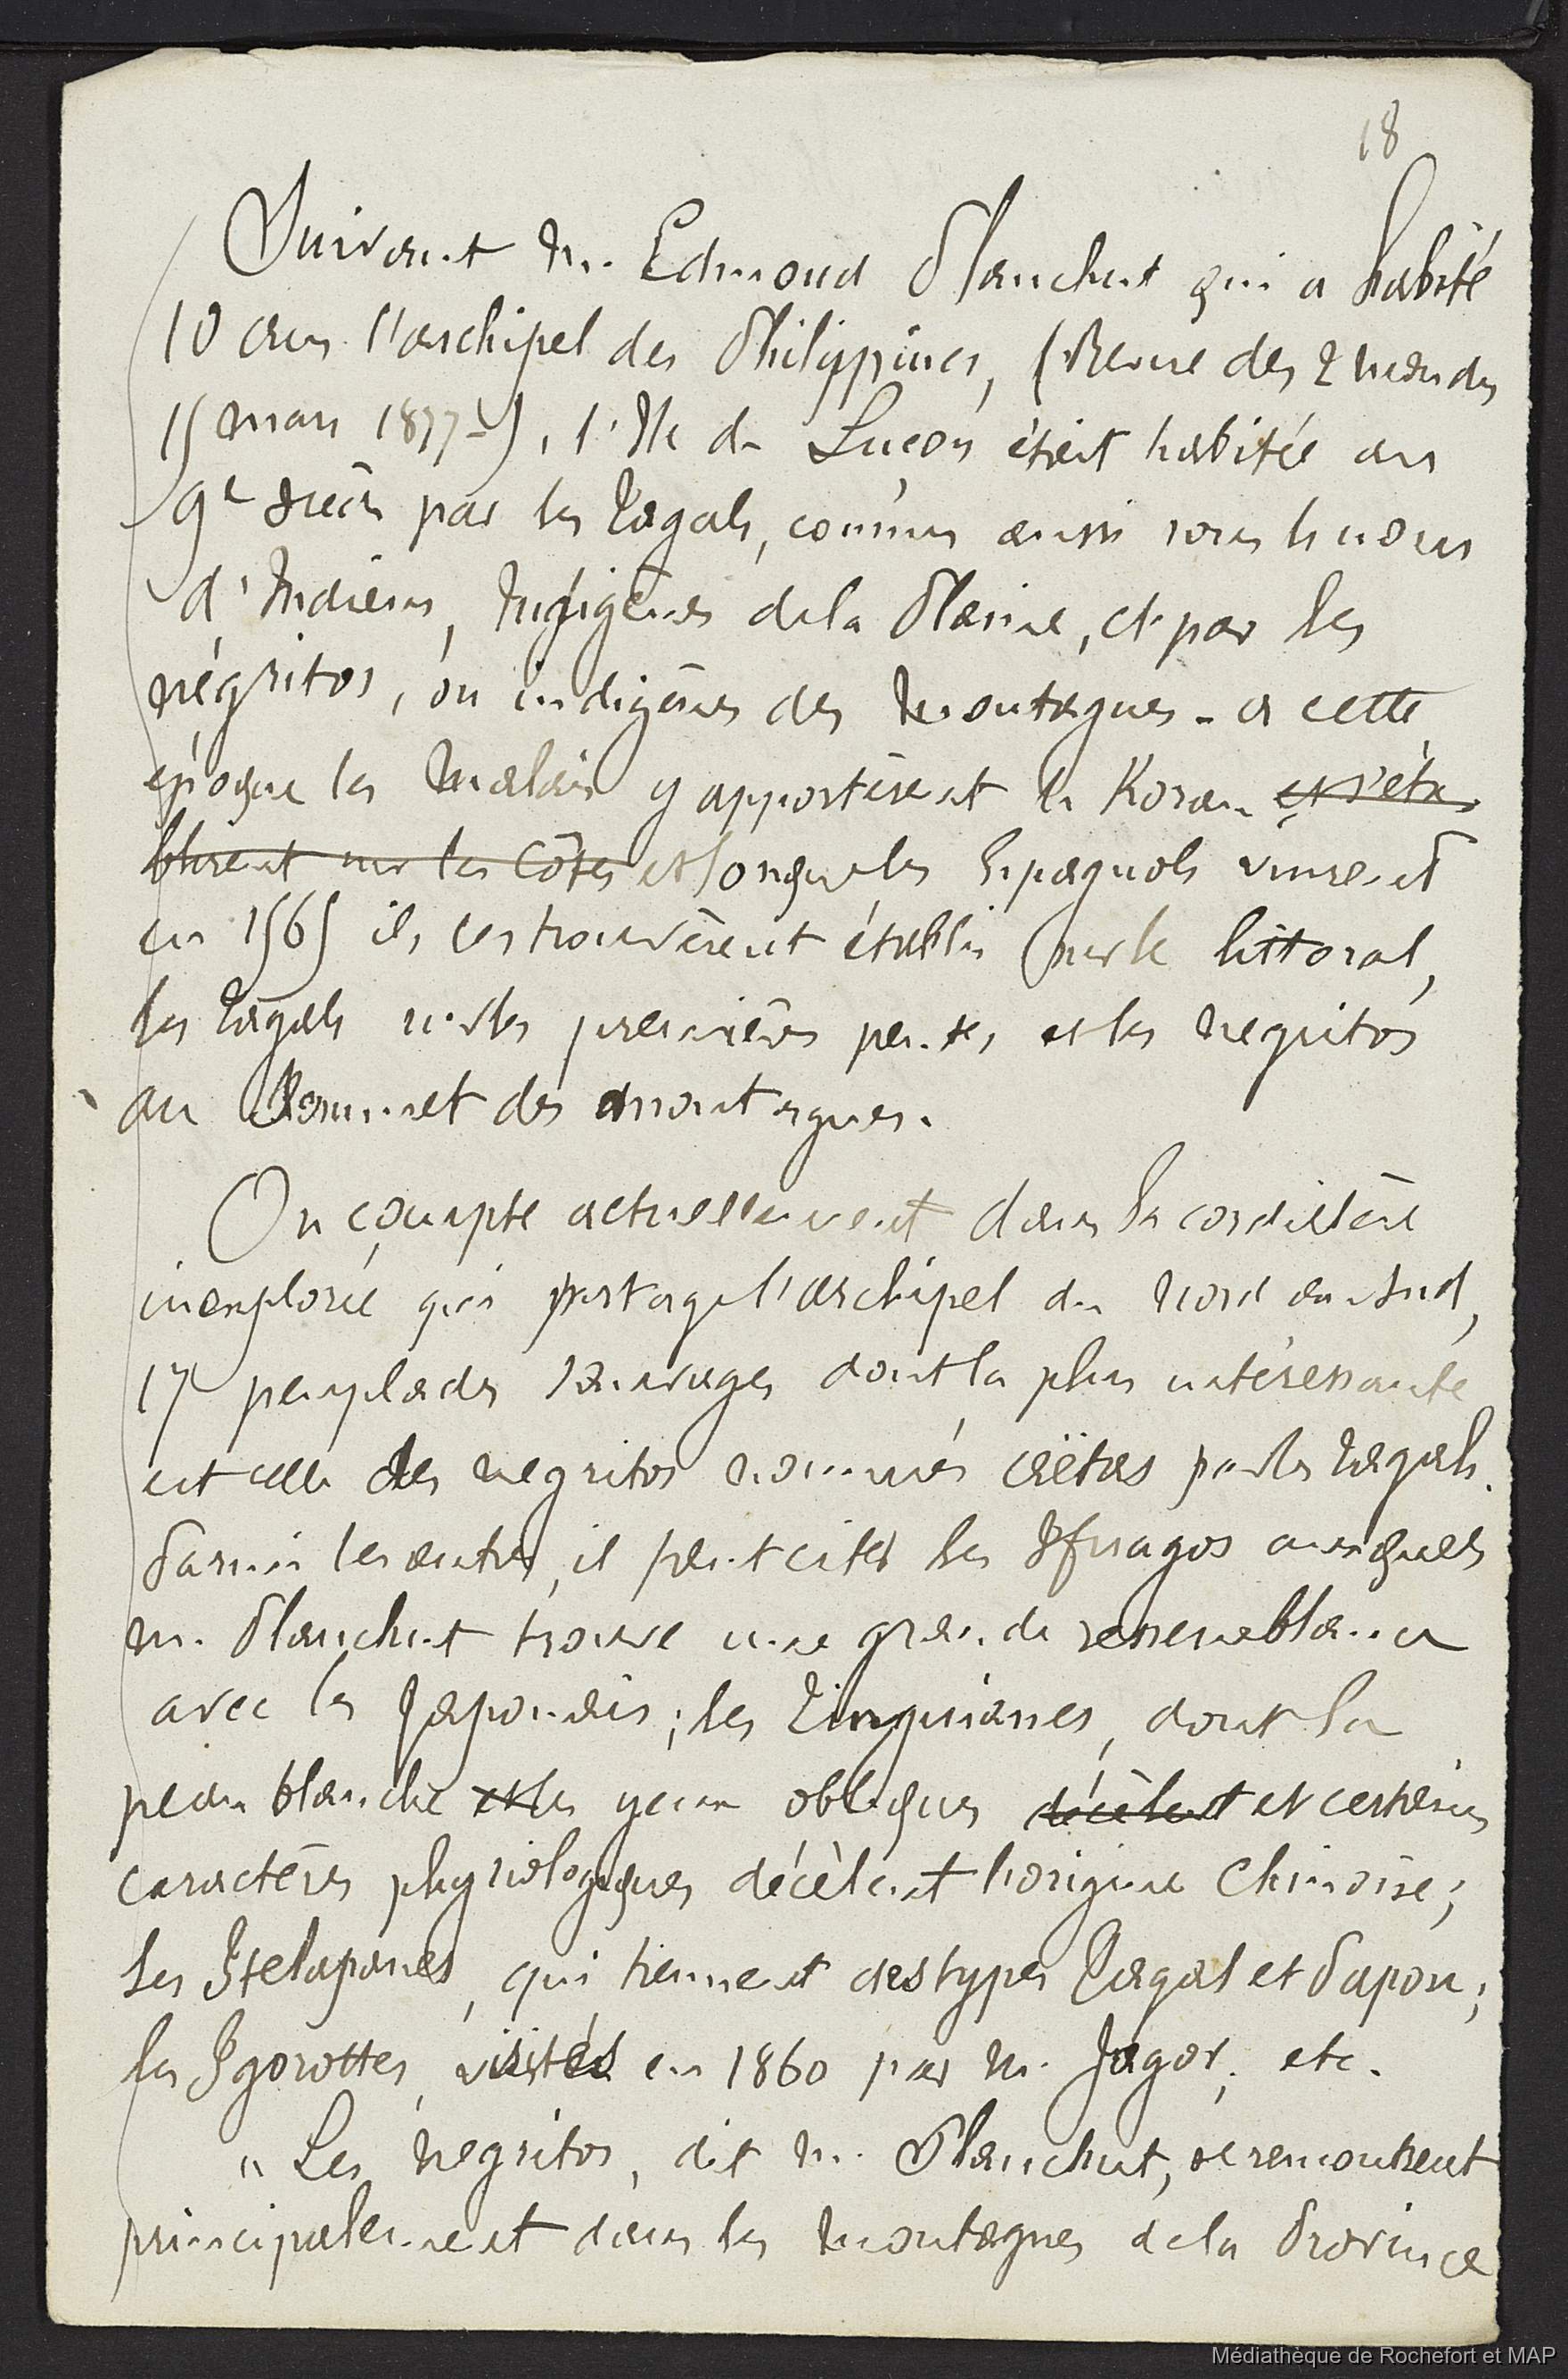 18
Suivant M. Edmond Plauchut qui a habité
10 ans l'archipel des Philippines, (Revue des 2 mondes
15 mars 1877), l'Ile de Luçon était habitée au
9e siècle par les Tagals, connus aussi sous le nom
d'Indiens, Indigènes de la Plaine, et par les
négritos, ou indigènes des Montagnes - a cette
époque les Malais y apportèrent le Koran et s'éta
blirent sur les côtes et lorsque les Espagnols vinrent
en 1565 ils les trouvèrent établis sur le littoral,
les Tagals sur les premières pentes et les negritos
au Sommet des montagnes.
On compte actuellement dans la cordillère
inexplorée qui partage l'archipel du Nord au Sud,
17 peuplades sauvages dont la plus intéressante
est celle des negritos nommés aëtas par les Tagals.
Parmi les autres, il peut citer les Ifugaos auxquels
M. Plauchut trouve une grande ressemblance
avec les Japonais; les Tinguianes, dont la
peau blanche et les yeux obliques décèlent et certains
caractères physiologiques décèlent l'origine Chinoise;
les Itelapanes, qui tiennent des types Tagal et Papou;
les Igorottes, visités en 1860 par M. Jagor, etc.
" Les Negritos, dit M. Plauchut, se rencontrent
principalement dans les Montagnes de la Province
Médiathèque de Rochefort et MAP